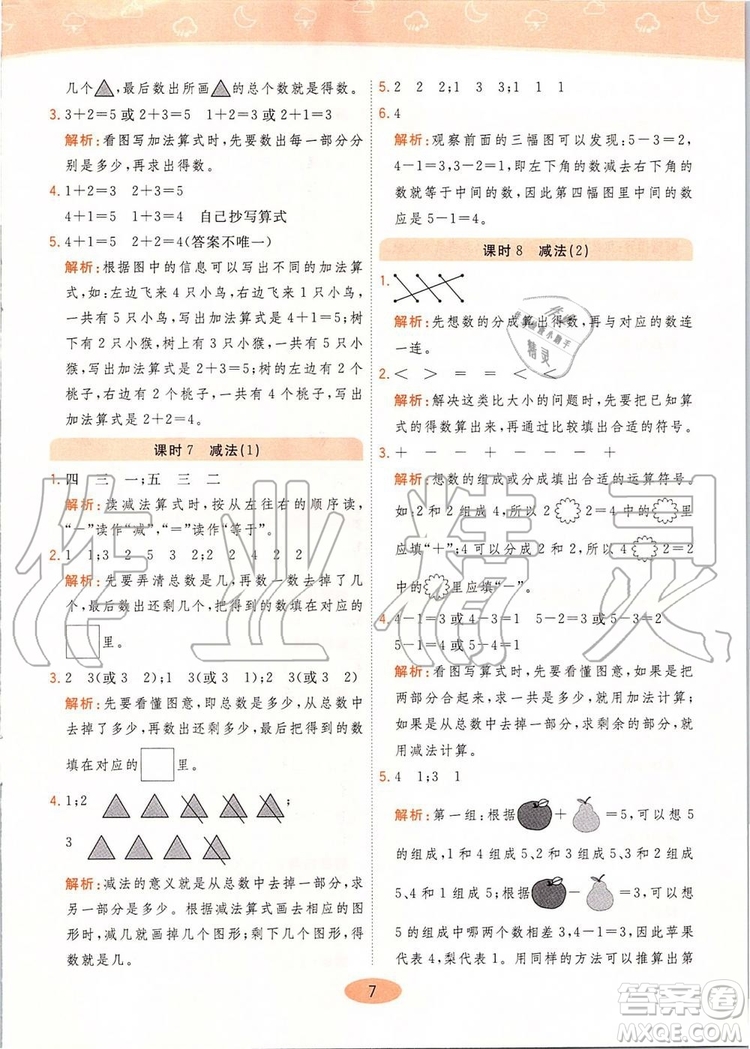 几个,最后数出所画的总个数就是得数。
3. 3+2=5 或 2+3=5 1+2=3 或 2+1=3
解析:看图写加法算式时,先要数出每一部分分
别是多少,再求出得数。
4. 1+2=3 2+3=5
4+1=5 1+3=4 自己抄写算式
5. 4+1=5 2+2=4(答案不唯一)
解析:根据图中的信息可以写出不同的加法算
式,如:左边飞来 4 只小鸟,右边飞来 1 只小鸟,
一共是 5 只小鸟,写出加法算式是 4+1=5;大
树下有 2 只小猴,树上有 2 只小猴,一共有 4 只小
猴,写出加法算式是 2+2=4;左边的盘里有 2 个
桃子,右边有 2 个桃子,一共有 4 个桃子,写出
加法算式是 2+2=4。
课时 7 减法(1)
1. 四 三 一;五 三 二
解析:读减法算式时,按从左往右的顺序读,
“-”读作“减”,“=”读作“等于”。
2. 1 1;3 2 5 3 2;4 2 2
解析:先要弄清总数是几,再看去掉了几个,最
后数出还剩几个,把得到的数填在对应的
里。
3. 2 3(或 2) 2(或 3) 1(或 3) 3(或 1)
解析:先要看懂图意,即总数是多少,从总数中
去掉了多少,再数出还剩多少,最后把得到的数
填在对应的里。
4. 1;2 ;
3
解析:减法的意义就是从总数中去掉一部分,求
剩下的部分。根据减法算式画出相应的图形
时,减几就画掉几个图形;剩下几个图形,得
数就是几。
5. 2 2 2;1 3 3;1 1 1
6. 4
解析:观察前面的三幅图可以发现:5-3=2,
4-1=3,3-2=1,即左上角的数减去右下角的
数就等于中间的数,因此第四幅图里中间的数
应是 5-1=4。
课时 8 减法(2)
1.
解析:先想数的分成算出得数,再与对应的数连
一连。
2. < > = < = >
解析:解决这类比大小的问题时,先要把已知算
式的得数算出来,再与另一个数作比较。
3. + - - + - -
解析:想数的组成或分成填出合适的运算符号。
如:2 和 2 组成 4,所以 22=4 的里
应填“+”;4 可以分成 2 和 2,所以 42=2
的里应填“-”。
4. 4-1=3 1+2=3 5-2=3 5-4=1
解析:先要看懂图意,再列式计算,如果是把
两部分合起来,求一共是多少,用加法计算;
如果是从总数中去掉一部分,求剩余的部分,就
用减法计算。
5. 4 1;3 1
解析:第一组:根据+=5,可以想 5
的组成,1 和 4 组成 5、2 和 3 组成 5、3 和 2 组成
5、4 和 1 组成 5,再根据-=3,可以想
5 的组成中哪两个数相差 3,4-1=3,因此苹果
代表 4,梨代表 1。用同样的方法可以推算出第
7
作业精灵
答案圈
MXQE.COM